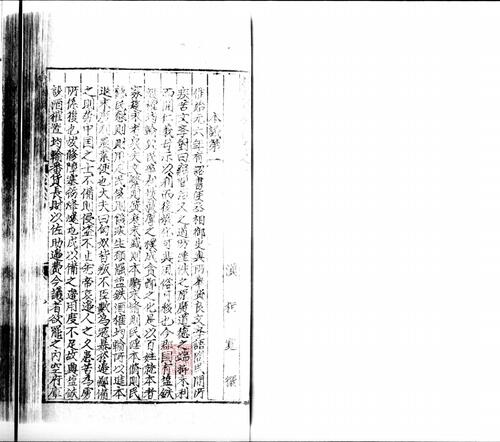 漢桓寬撰
本議第一
惟始元六年有詔書使丞相御史與所舉賢良文學語問民間所
疾苦文學對曰竊聞治人之道防淫佚之原廣道德之端抑末利
而開仁義毋示以利然後教化可興而風俗可移也今郡國有鹽鐵
酒榷均輸與民爭利散敦厚之樸成貪鄙之化是以百姓就本者
寡趨末者衆夫文繁則質衰末盛則本虧末修則民淫本修則民
慤民慤則財用足民侈則饑寒生願罷鹽鐵酒榷均輸所以進本
退末廣利農業便也大夫曰匈奴背叛不臣數為寇暴於邊鄙備
之則勞中國之士不備則侵盜不止先帝哀邊人之久患苦為虜
所係獲也故修障塞飭烽燧屯戍以備之邊用度不足故興鹽鐵
設酒榷置均輸蕃貨長財以佐助邊費今議者欲罷之內空府庫